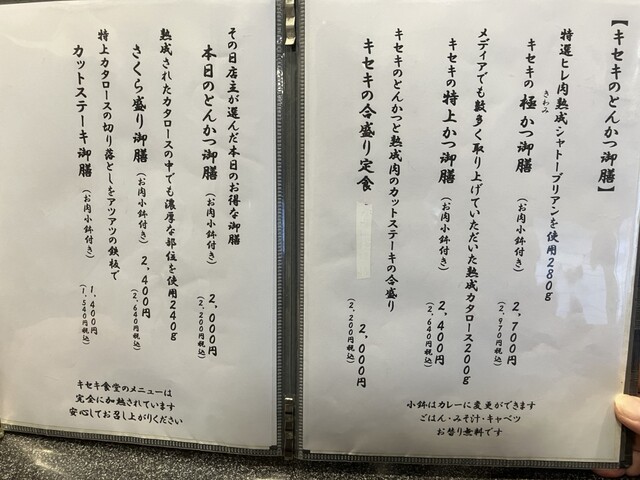 【キセキのとんかつ御膳】
特選ヒレ肉熟成シャトーブリアンを使用280g
キセキの 極かつ御膳 (お肉小鉢付き) 2,700円
きわみ
(2,970円税込)
メディアでも数多く取り上げていただいた熟成カタロース200g
キセキの 特上かつ御膳 (お肉小鉢付き) 2,400円
(2,640円税込)
キセキのとんかつと熟成肉のカットステーキの合盛り
キセキの合盛り定食 2,000円
(2,200円税込)
小鉢はカレーに変更ができます
ごはん・みそ汁・キャベツ
お替り無料です
その日店主が選んだ本日のお得な御膳
本日のとんかつ御膳 (お肉小鉢付き) 2,000円
(2,200円税込)
熟成されたカタロースの中でも濃厚な部位を使用240g
さくら盛り御膳 (お肉小鉢付き) 2,400円
(2,640円税込)
特上カタロースの切り落としをアツアツの鉄板で
カットステーキ御膳 (お肉小鉢付き) 1,400円
(1,540円税込)
キセキ食堂のメニューは
完全に加熱されています
安心してお召し上がりください